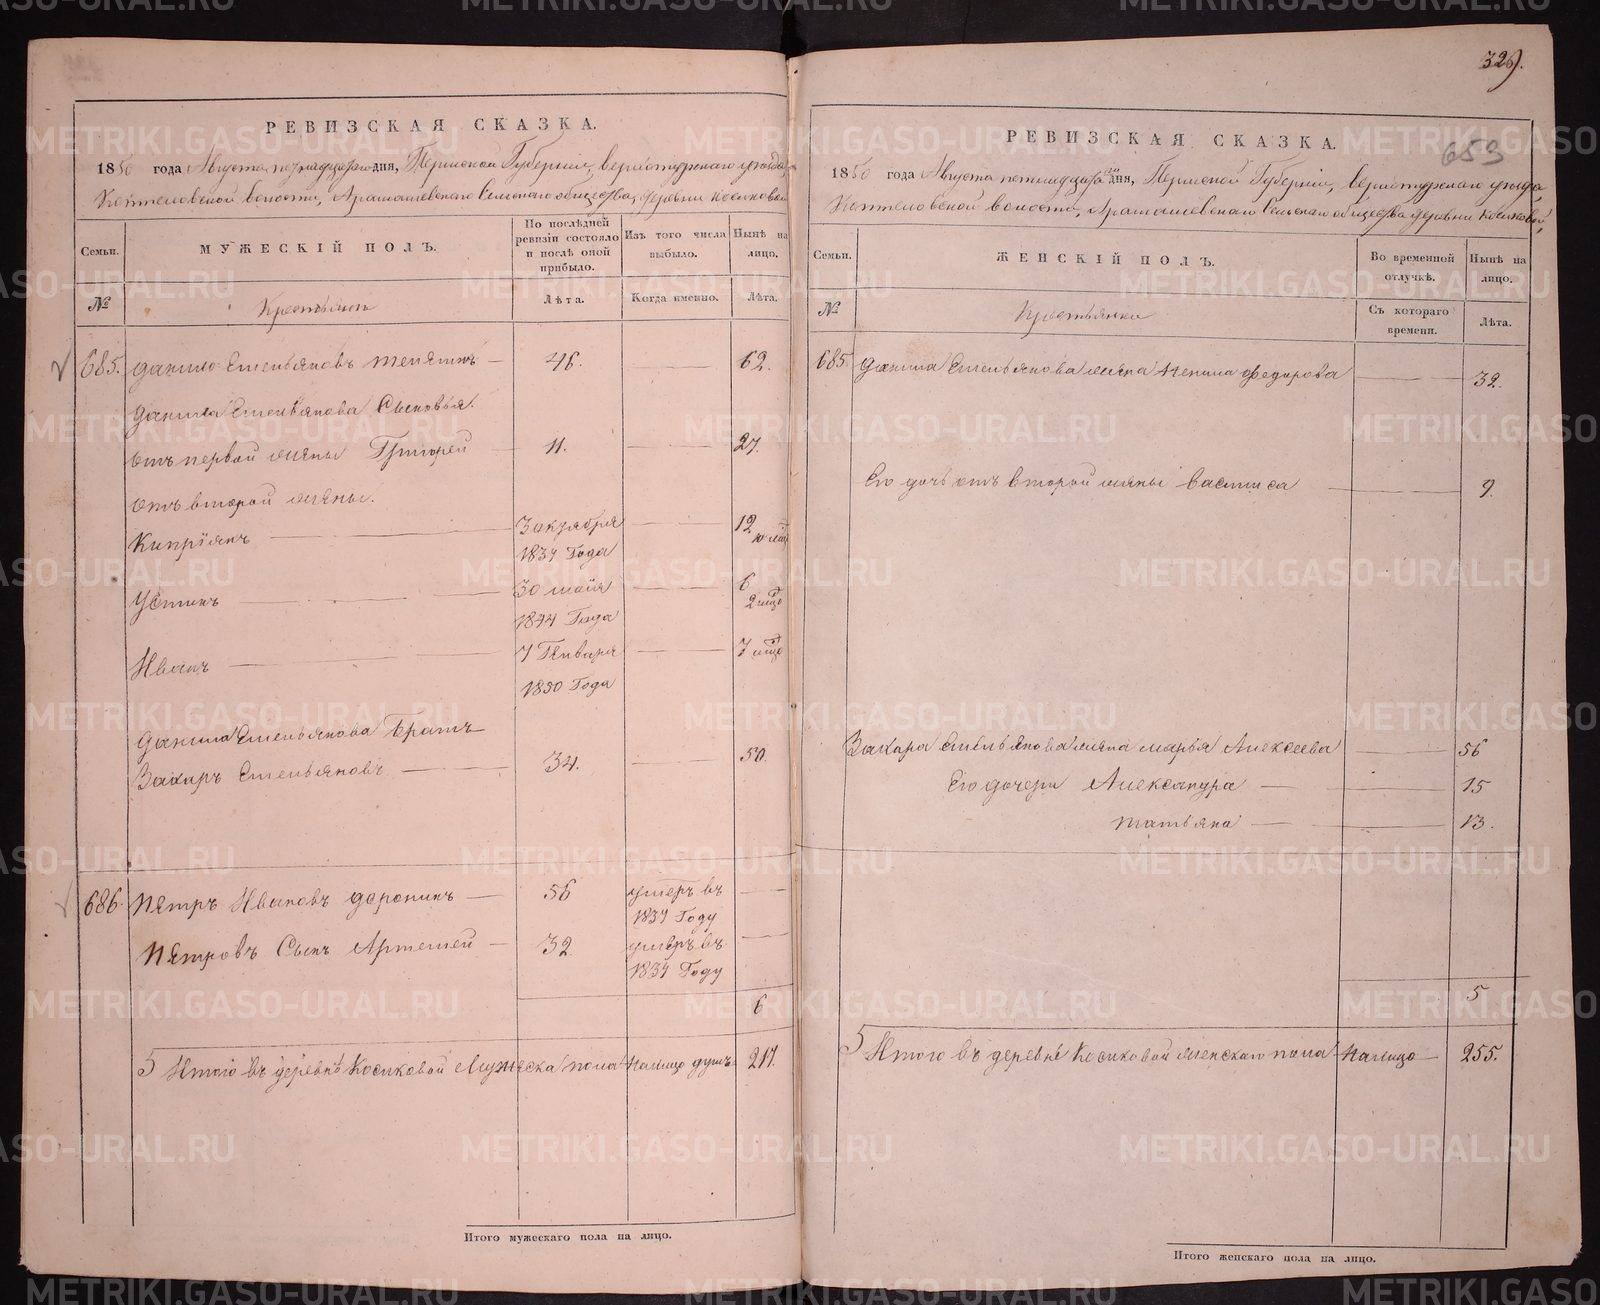 РЕВИЗСКАЯ СКАЗКА.
1850 года Августа пятнадцатаго дня, Пермской Губернии, Верхотурскаго уезда
Коптеловской волости, Арамашевскаго Сельскаго общества, деревни Косиковой
Семьи.
МУЖЕСКІЙ ПОЛЪ.
По послѣдней ревизіи состояло и послѣ оной прибыло.
Изъ того числа выбыло.
Нынѣ на лицо.
№
Крестьянъ
Лѣта.
Когда именно.
Лѣта.
685. Данило Емельяновъ 46. 62.
Данила Емельянова Сыновья.
отъ первой жены Григорей 11. 27.
отъ второй жены.
Кипріянъ 3 октября 1837 Года 12
Устинъ 30 майя 1844 Года 6
Иванъ 7 Генваря 1850 Года 7
Данила Емельянова Братъ
Захаръ Емельяновъ 34. 50.
686. Петръ Ивановъ Доронинъ 56 умеръ въ 1837 Году
Петровъ Сынъ Артемей 32 умеръ въ 1837 Году
6
Итого въ деревнѣ Косиковой Мужеска пола налицо душъ 217.
Итого мужескаго пола на лицо.
329.
653
РЕВИЗСКАЯ СКАЗКА.
1850 года Августа пятнадцатаго дня, Пермской Губерніи, Верхотурскаго уезда
Коптеловской волости, Арамашевскаго Сельскаго общества деревни Косиковой,
Семьи.
ЖЕНСКІЙ ПОЛЪ.
Во временной отлучкѣ.
Нынѣ на лицо.
№
Крестьянки
Съ котораго времени.
Лѣта.
685. Данила Емельянова жена Федорова 32.
Его дочь отъ второй жены Василиса 9.
Захара Емельянова жена Марья Алексеева 56
Его дочери Александра 15
Татьяна 13.
5
Итого въ деревнѣ Косиковой женскаго пола налицо 255.
Итого женскаго пола на лицо.
METRIKI.GASO-URAL.RU